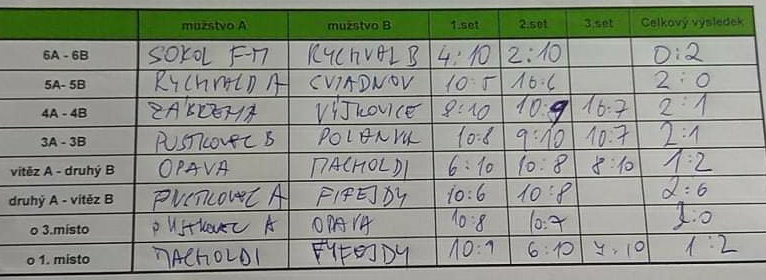 mužstvo A mužstvo B 1.set 2.set 3.set Celkový výsledek
6A - 6B SOKOL F-M RYCHVAL B 4:10 2:10 0:2
5A- 5B RYCHVALD A CVIADNOV 10:5 10:6 2:0
4A - 4B ZÁBŘEHA VÝTKOVICE 8:10 10:9 10:7 2:1
3A - 3B PUSTKOVEC B POLANKA 10:8 9:10 10:7 2:1
vítěz A - druhý B OPAVA MACHOLDI 6:10 10:8 8:10 1:2
druhý A - vítěz B PUSTKOVEC A FIFEJDY 10:6 10:8
o 3.místo PUSTKOVEC A OPAVA 10:8 10:7 2:0
o 1. místo MACHOLDI FYFEJDY 10:9 6:10 7:10 1:2